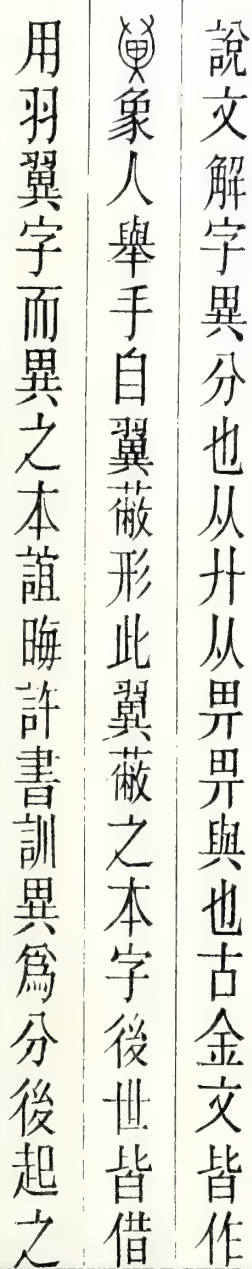 說文解字異分也从廾从畀畀與也古金文皆作
象人舉手自翼蔽形此翼蔽之本字後世皆借
用羽翼字而異之本誼晦許書訓異爲分後起之